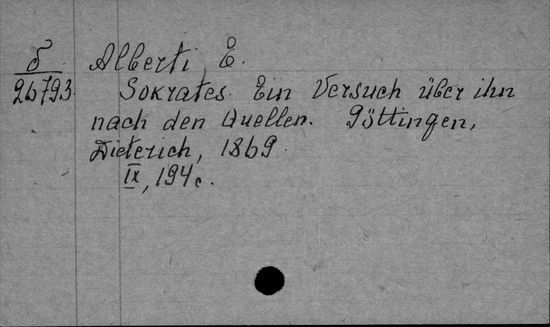 δ Alberti, E.
26793 Sokrates. Ein Versuch über ihn
nach den Quellen. Göttingen,
Dieterich, 1869.
IX, 194 с.